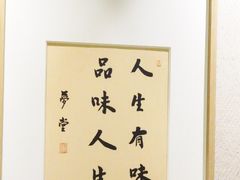 人生有味
品味人生
夢堂